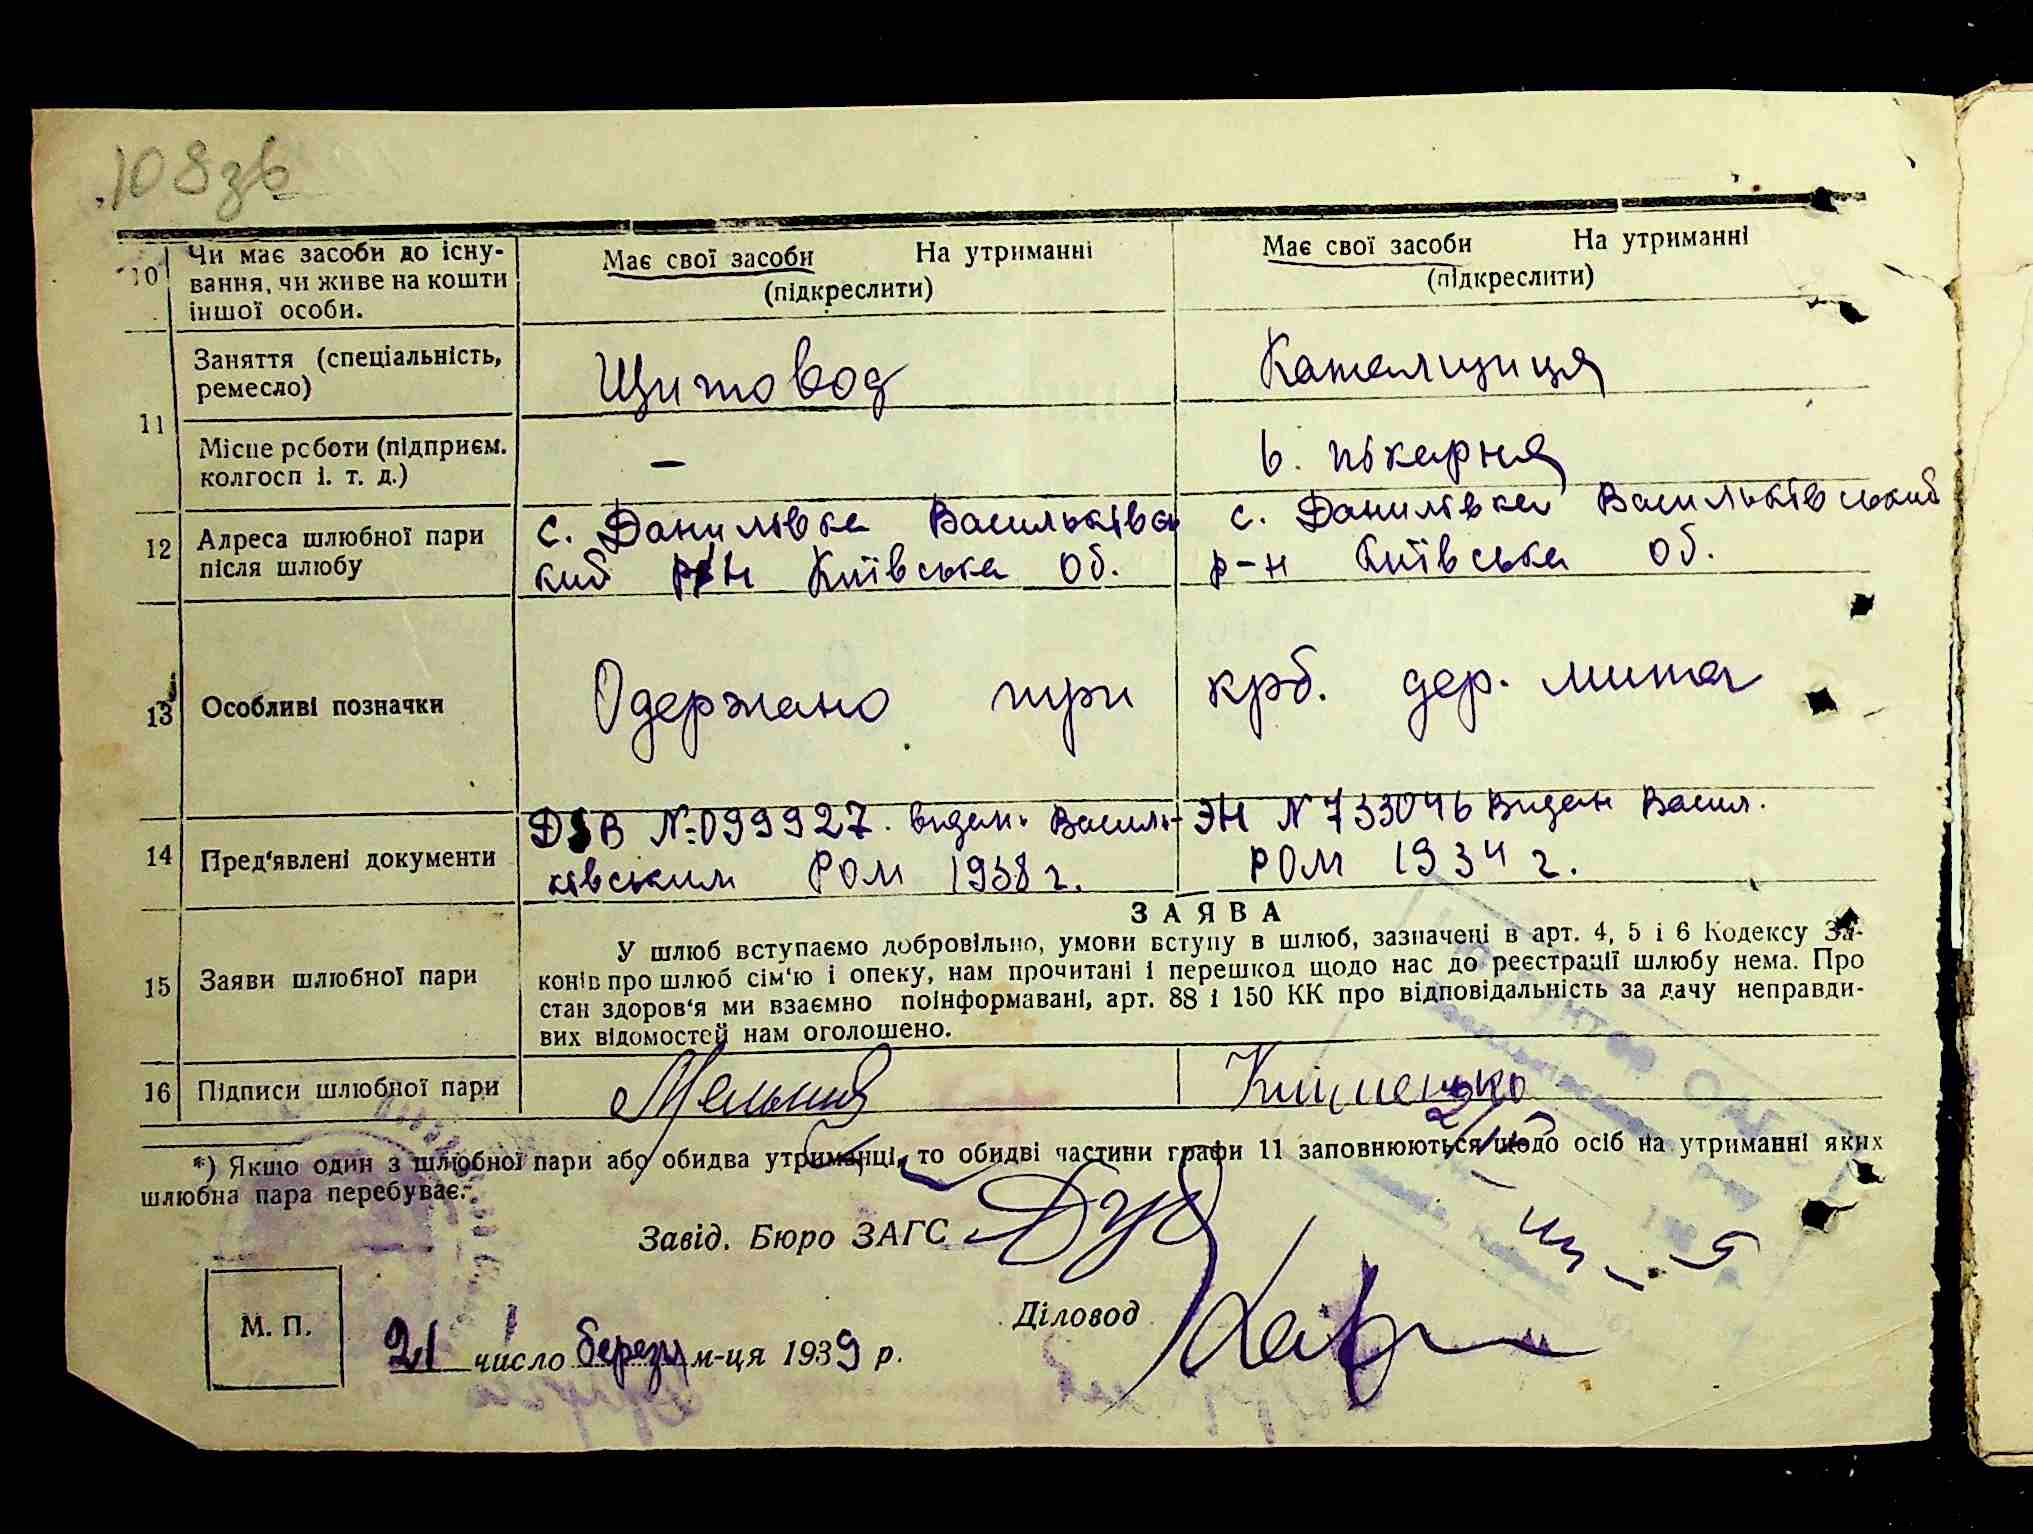 108зв
10 Чи має засоби до існу-
вання, чи живе на кошти
іншої особи.
Має свої засоби На утриманні
(підкреслити)
Має свої засоби На утриманні
(підкреслити)
11 Заняття (спеціальність,
ремесло)
Щитовод
Каталщиця
Місце роботи (підприєм.
колгосп і. т. д.)
—
в. пікарня
12 Адреса шлюбної пари
після шлюбу
с. Данилівка Васильківсь
кий р-н Київська об.
с. Данилівка Васильківський
р-н Київська об.
13 Особливі позначки
Одержано три крб. дер. мита
14 Пред'явлені документи
№ 099927. виден. Василь-
ківським РОМ 1938 г.
ЭН N 733046 Виден Васил.
РОМ 1934 г.
15 Заяви шлюбної пари
ЗАЯВА
У шлюб вступаємо добровільно, умови вступу в шлюб, зазначені в арт. 4, 5 і 6 Кодексу За-
конів про шлюб сім'ю і опеку, нам прочитані і перешкод щодо нас до реєстрації шлюбу нема. Про
стан здоров'я ми взаємно поінформавані, арт. 88 і 150 КК про відповідальність за дачу неправди-
вих відомостей нам оголошено.
16 Підписи шлюбної пари
Мельник
Клименко
*) Якщо один з шлюбної пари або обидва утриманці, то обидві частини графи 11 заповнюються щодо осіб на утриманні яких
шлюбна пара перебуває.
Завід. Бюро ЗАГС
Діловод
М. П.
21 число березня м-ця 1939 р.